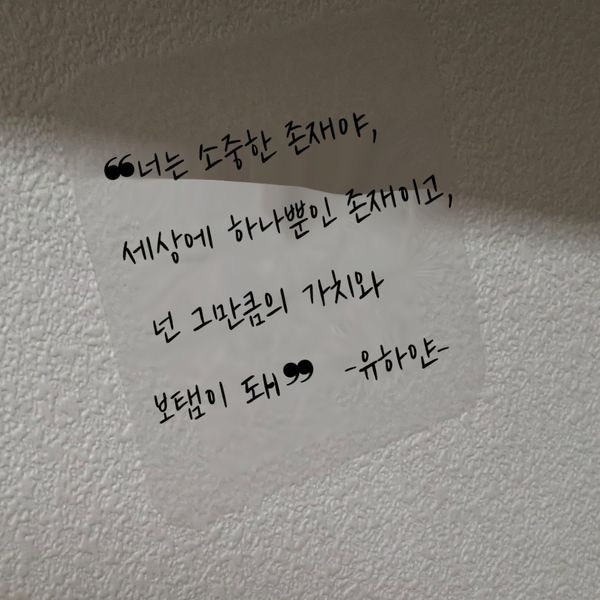 ❝너는 소중한 존재야,
세상에 하나뿐인 존재이고,
넌 그만큼의 가치와
보탬이 돼❞ -유하얀-